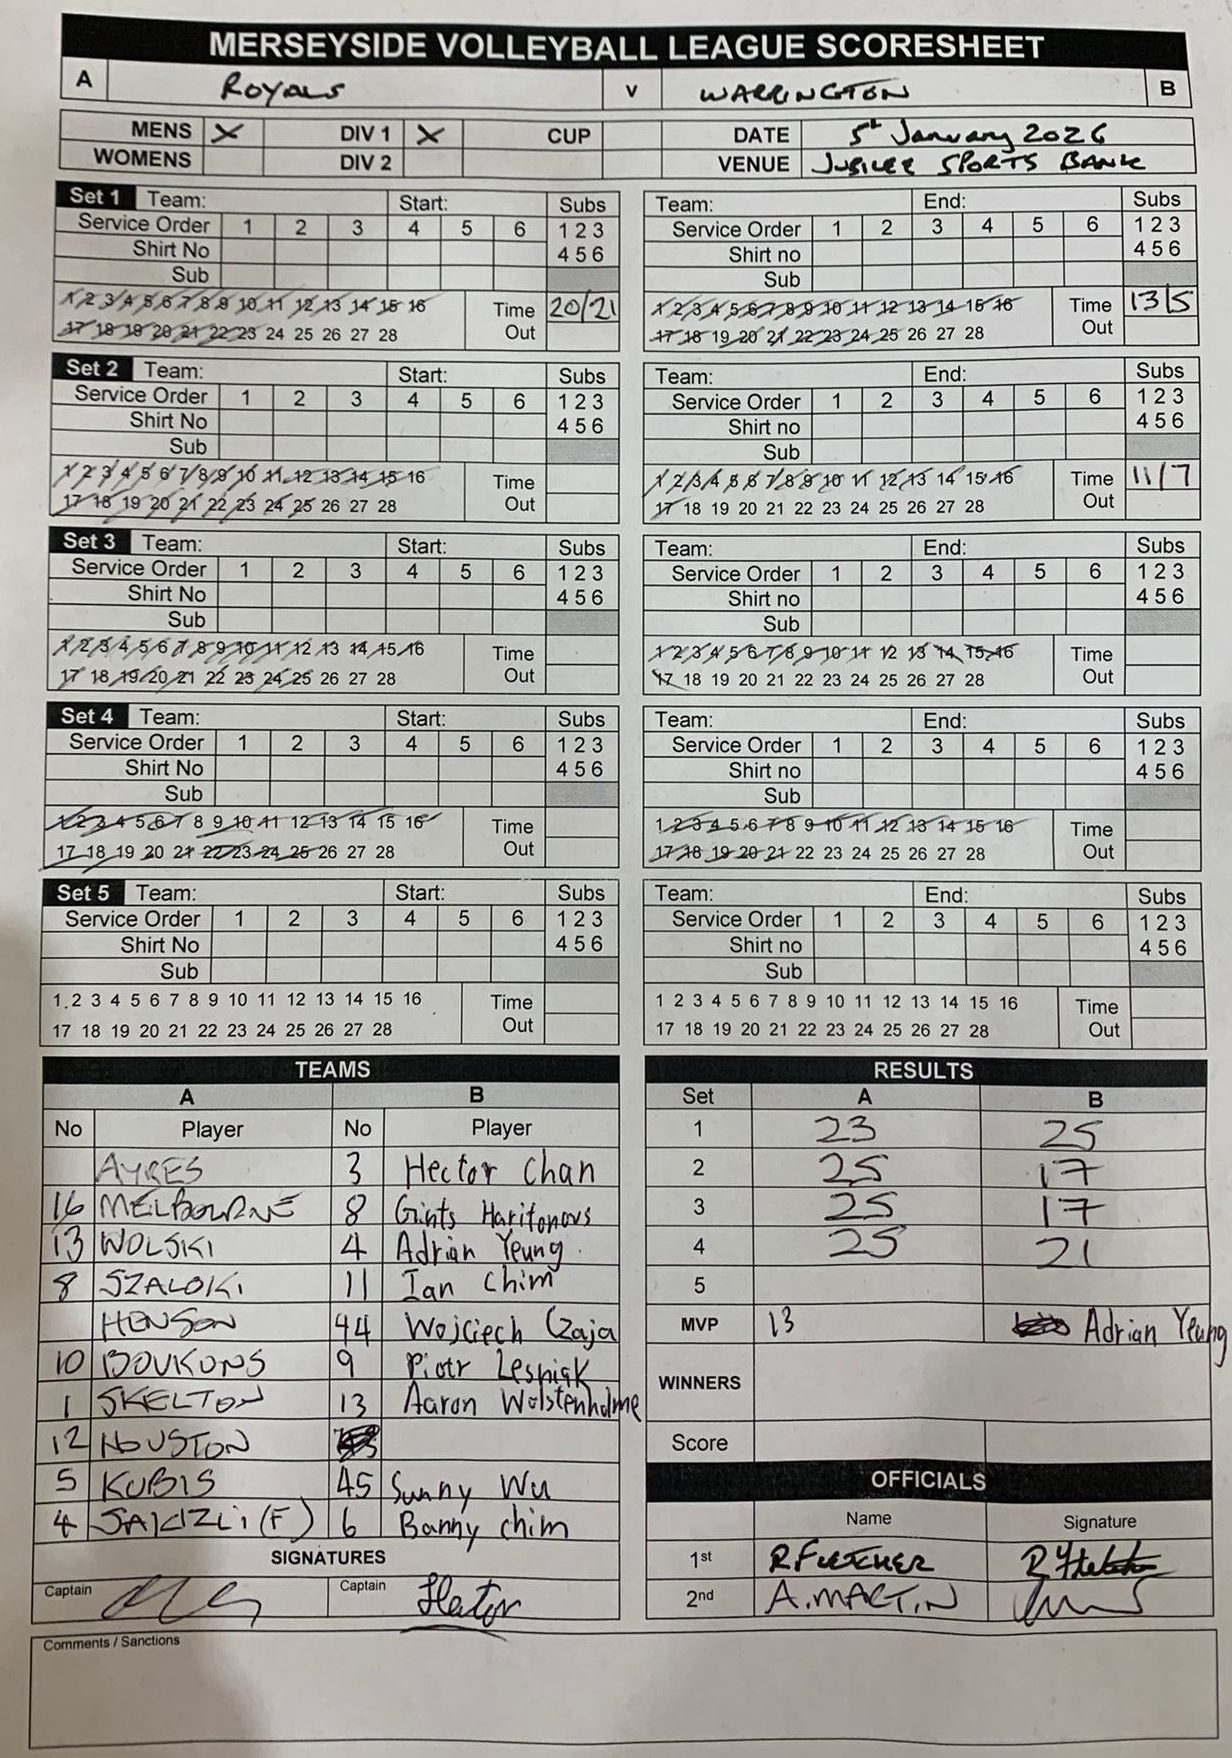 MERSEYSIDE VOLLEYBALL LEAGUE SCORESHEET
A ROYALS V WARRINGTON B
MENS X DIV 1 X CUP DATE 5th January 2026
WOMENS DIV 2 VENUE JUBILEE SPORTS BANK
Set 1 Team: Start: Subs Team: End: Subs
Service Order 1 2 3 4 5 6 1 2 3 Service Order 1 2 3 4 5 6 1 2 3
Shirt No 4 5 6 Shirt no 4 5 6
Sub Sub
1 2 3 4 5 6 7 8 9 10 11 12 13 14 15 16 Time 20/21 1 2 3 4 5 6 7 8 9 10 11 12 13 14 15 16 Time 13/5
17 18 19 20 21 22 23 24 25 26 27 28 Out 17 18 19 20 21 22 23 24 25 26 27 28 Out
Set 2 Team: Start: Subs Team: End: Subs
Service Order 1 2 3 4 5 6 1 2 3 Service Order 1 2 3 4 5 6 1 2 3
Shirt No 4 5 6 Shirt no 4 5 6
Sub Sub
1 2 3 4 5 6 7 8 9 10 11 12 13 14 15 16 Time 1 2 3 4 5 6 7 8 9 10 11 12 13 14 15 16 Time 11/7
17 18 19 20 21 22 23 24 25 26 27 28 Out 17 18 19 20 21 22 23 24 25 26 27 28 Out
Set 3 Team: Start: Subs Team: End: Subs
Service Order 1 2 3 4 5 6 1 2 3 Service Order 1 2 3 4 5 6 1 2 3
Shirt No 4 5 6 Shirt no 4 5 6
Sub Sub
1 2 3 4 5 6 7 8 9 10 11 12 13 14 15 16 Time 1 2 3 4 5 6 7 8 9 10 11 12 13 14 15 16 Time
17 18 19 20 21 22 23 24 25 26 27 28 Out 17 18 19 20 21 22 23 24 25 26 27 28 Out
Set 4 Team: Start: Subs Team: End: Subs
Service Order 1 2 3 4 5 6 1 2 3 Service Order 1 2 3 4 5 6 1 2 3
Shirt No 4 5 6 Shirt no 4 5 6
Sub Sub
1 2 3 4 5 6 7 8 9 10 11 12 13 14 15 16 Time 1 2 3 4 5 6 7 8 9 10 11 12 13 14 15 16 Time
17 18 19 20 21 22 23 24 25 26 27 28 Out 17 18 19 20 21 22 23 24 25 26 27 28 Out
Set 5 Team: Start: Subs Team: End: Subs
Service Order 1 2 3 4 5 6 1 2 3 Service Order 1 2 3 4 5 6 1 2 3
Shirt No 4 5 6 Shirt no 4 5 6
Sub Sub
1 2 3 4 5 6 7 8 9 10 11 12 13 14 15 16 Time 1 2 3 4 5 6 7 8 9 10 11 12 13 14 15 16 Time
17 18 19 20 21 22 23 24 25 26 27 28 Out 17 18 19 20 21 22 23 24 25 26 27 28 Out
TEAMS
A B
No Player No Player
AYRES 3 Hector Chan
16 MELBOURNE 8 Gints Haritonovs
13 WOLSKI 4 Adrian Yeung
8 SZALOKI 11 Ian Chim
HENSON 44 Wojciech Czaja
10 BOUKONS 9 Piotr Lesniak
1 SKELTON 13 Aaron Wolstenholme
12 HOUSTON
5 KUBIS 45 Sunny Wu
4 SAKIZLI (F) 6 Banny Chim
SIGNATURES
Captain Captain Hector
Comments / Sanctions
RESULTS
Set A B
1 23 25
2 25 17
3 25 17
4 25 21
5
MVP 13 Adrian Yeung
WINNERS
Score
OFFICIALS
Name Signature
1st R FLETCHER R Fletcher
2nd A. MARTIN